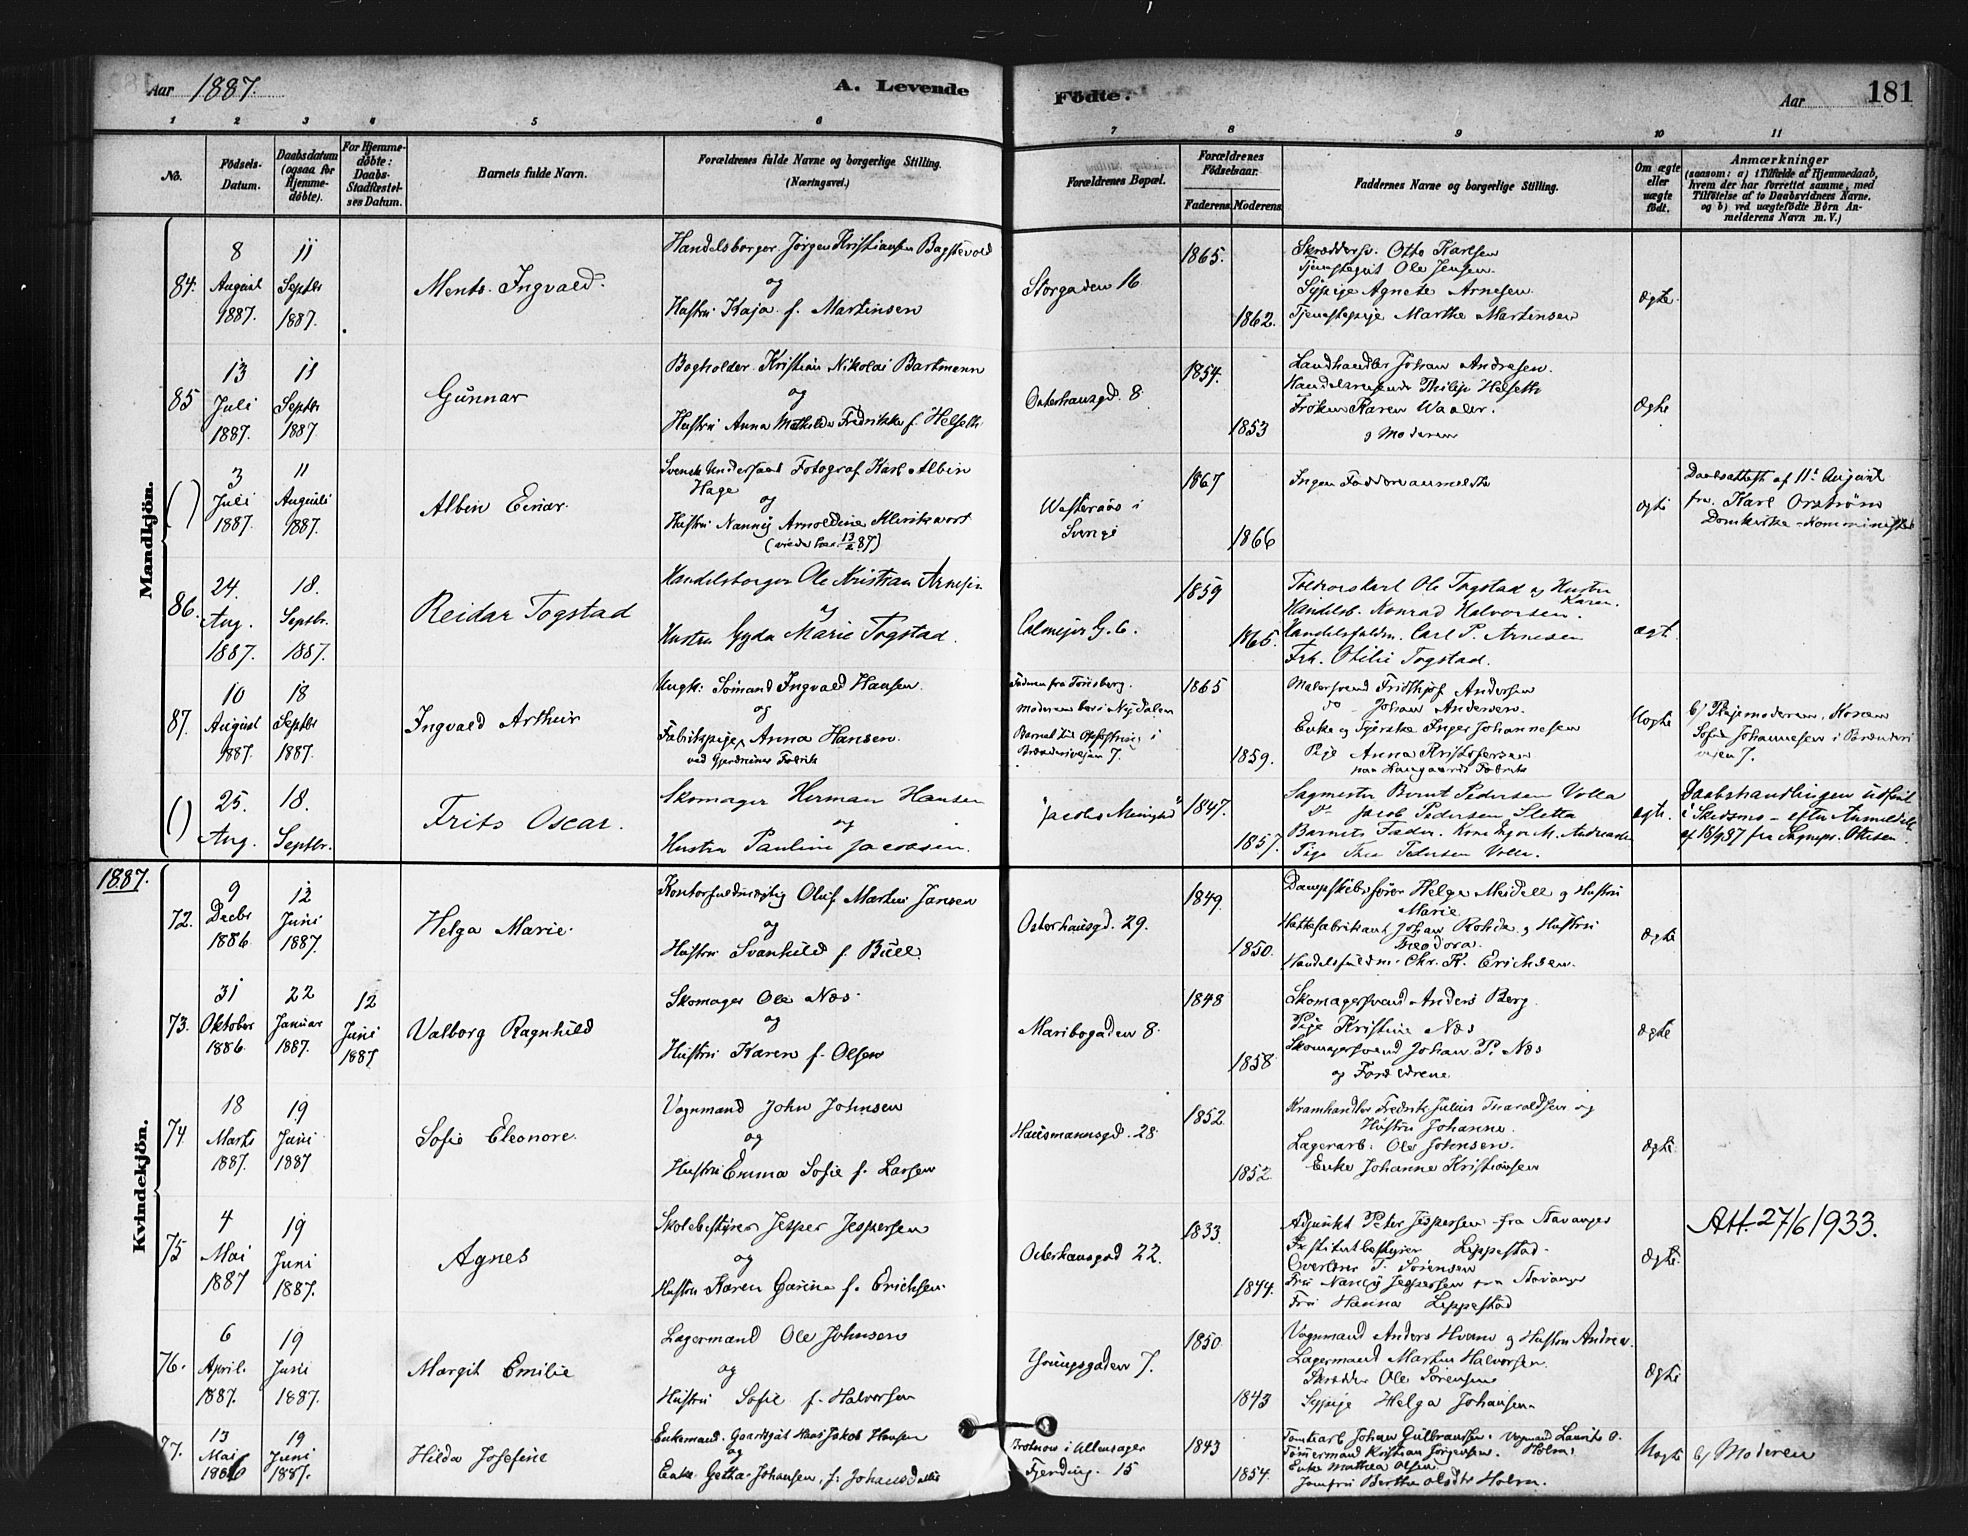 Aar 1887.
A. Levende
Fødte.
Aar
181
1 2 3 4 5 6 7 8 9 10 11
No.
Fødsels-Datum.
Daabsdatum (ogsaa for Hjemmedøbte).
For Hjemmedøbte: Daabs-Stadfæstelses Datum.
Barnets fulde Navn.
Forældrenes fulde Navne og borgerlige Stilling. (Næringsvei.)
Forældrenes Bopæl.
Forældrenes Fødselsaar.
Faderens. Moderens.
Faddernes Navne og borgerlige Stilling.
Om ægte eller uægte født.
Anmærkninger
(saasom: a) i Tilfælde af Hjemmedaab, hvem der har forrettet samme, med Tilføielse af to Daabsvidners Navne, og b) ved uægtefødte Børn Anmelderens Navn m. V.)
Mandkjön.
84.
8 August 1887.
11 Septbr 1887.
Ments Ingvald
Handelsborger Jørgen Kristiansen
og
Hustru Kaja f. Martinsen
Storgaden 16
1865.
1862.
Skræddersv. Otto Karlsen
Tjenstegut Ole Jensen
Sypige Agnete Arnesen
Tjenstepige Marthe Martinsen
Ægte
85
13 Juli 1887.
11 Septbr 1887
Gunnar
Bogholder Kristian Nikolai Bartmann
og
Hustru Anna Mathilde Fredrikke f. Helseth
Osterhausgd. 8.
1854.
1853
Landhandler Johan Andresen.
Handelsreisende Philip Helseth
Frøken Karen Waaler.
og Moderen
Ægte
( )
3 Juli 1887.
11 August 1887.
Albin Einar.
Svensk Undersaat Fotograf Karl Albin
Hage
og
Hustru Nanny Arnoldine
Westeraas i
Sverige
1867
1866
Ingen Faddere anmeldte
ægte
Daabsattest af 11te August
fra Karl Orstrøm
Domkirke-Komminister
86.
24. Aug. 1887.
18. Septbr. 1887.
Reidar Togstad
Handelsborger Ole Kristian Arnesen
og
Hustru Gyda Marie Togstad.
Calmeyer G. 6.
1859
1865.
Ole Togstad og Hustru
Karen.
Handelsb. Konrad Halvorsen.
Handelsfuldm. Carl P. Arnesen
Frk. Otilie Togstad.
ægt.
87.
10 August 1887.
18 Septbr 1887.
Ingvald Arthur
Ungk. Sømand Ingvald Hansen.
og
Fabrikpige Anna Hansen.
Faderen fra Tønsberg.
Moderen bor i Nydalen
1865
1859.
Malersvend Fridthjof Andersen
do Johan Andersen.
Enke og Inger Johannesen
Pige Anna Kristofersen
Uægte
b/ Plejemoderen, Konen
Sofie Johannesen i
veien 7.
( )
25. Aug.
18. Septbr.
Frits Oscar.
Skomager Herman Hansen
og
Hustru Pauline Jacobsen.
1847.
1857.
Sagmester Bernt Pedersen Volla
Do Jacob Pedersen Sletta
Barnets Fader. Kone Inger M. Andreasdr
Pige Thea Pedersen Volla.
ægte.
Daabshandlingen udført
i Skedsmo - efter Anmeldelse
af 18/9 87 fra Sognepr. Ottesen
1887.
Kvindekjön.
72.
9 Decbr 1886.
12 Juni 1887.
Helga Marie.
Kontorfuldmægtig Oluf Martin Jansen
og
Hustru Svanhild f. Bull.
Osterhausgd. 29.
1849.
1850.
Dampskibsfører Helge Meidell og Hustru
Marie
Hattefabrikant Johan Rohde og Hustru
Theodora.
Handelsfuldm. Chr. K. Erichsen.
Ægte
73.
31 Oktober 1886.
22 Januar 1887.
12 Juni 1887
Valborg Ragnhild
Skomager Ole Næs.
og
Hustru Karen f. Olsen
Maribogaden 8.
1848
1858
Skomagersvend Anders Berg.
Pige Kristine Næs
Skomagersvend Johan P. Næs
og Forældrene
ægte
74.
18 Marts 1887.
19 Juni 1887
Sofie Eleonore.
Vognmand John Johnsen
og
Hustru Emma Sofie f. Larsen
Hausmannsgd. 28.
1852.
1852.
Kramhandler Fredrik Julius Tharaldsen og
Hustru Johanne.
Lagerarb. Ole Johnsen.
Enke Johanne Kristiansen
Ægte.
75
4 Mai 1887
19 Juni 1887.
Agnes
Skolebestyrer Jesper Jespersen
og
Hustru Karen Gurina f. Erichsen
Osterhausgad 22.
1833.
1844.
Adjunkt Peter Jespersen fra Stavanger
Institutbestyrer Lippestad.
Overlærer P. Sørensen
Fru Nancy Jespersen fra Stavanger
Fru Hanna Lippestad
Ægte.
Att 27/6 1933.
76.
6 April 1887.
19 Juni 1887.
Margit Emilie
Lagermand Ole Johnsen
og
Hustru Sofie f. Halvorsen
Youngsgaden 7.
1850.
1843
Vognmand Anders Hvam og Hustru Andrea.
Lagermand Martin Halvorsen.
Skrædder Ole Sørensen
Sypige Helga Johansen
Ægte
77.
13 Mai 1886
19 Juni 1887.
Hilda Josefine
Enkemand Gaardsgut Hans Jakob Hansen
og
Enke Getha Johansen, f. Johansdatter
i Ullensager
Fjerding. 15
1843
1854.
Tomtearb. Johan Gulbransen. Vognmand Laurits O.
Tømmermand Kristian Jørgensen. Holm.
Enke Mathea Olsen
Jomfru Berthe Olsdtr Holm.
Uægte
b/ Moderen